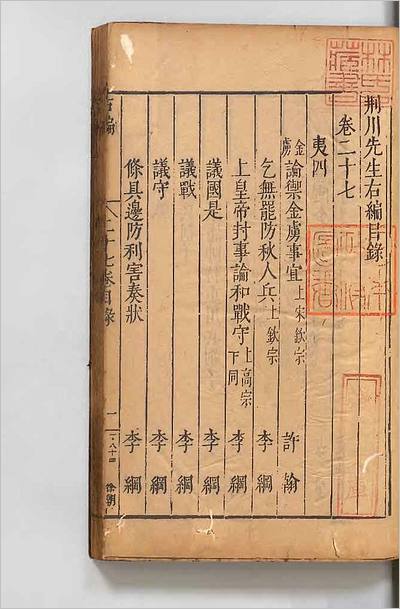 荆川先生右編目錄
卷二十七
夷四
金虜
論禦金虜事宜 上宋欽宗 許翰
乞無罷防秋人兵 上欽宗 李綱
上皇帝封事論和戰守 上高宗下同 李綱
議國是 李綱
議戰 李綱
議守 李綱
條具邊防利害奏狀 李綱
右編 二十七卷目錄 一